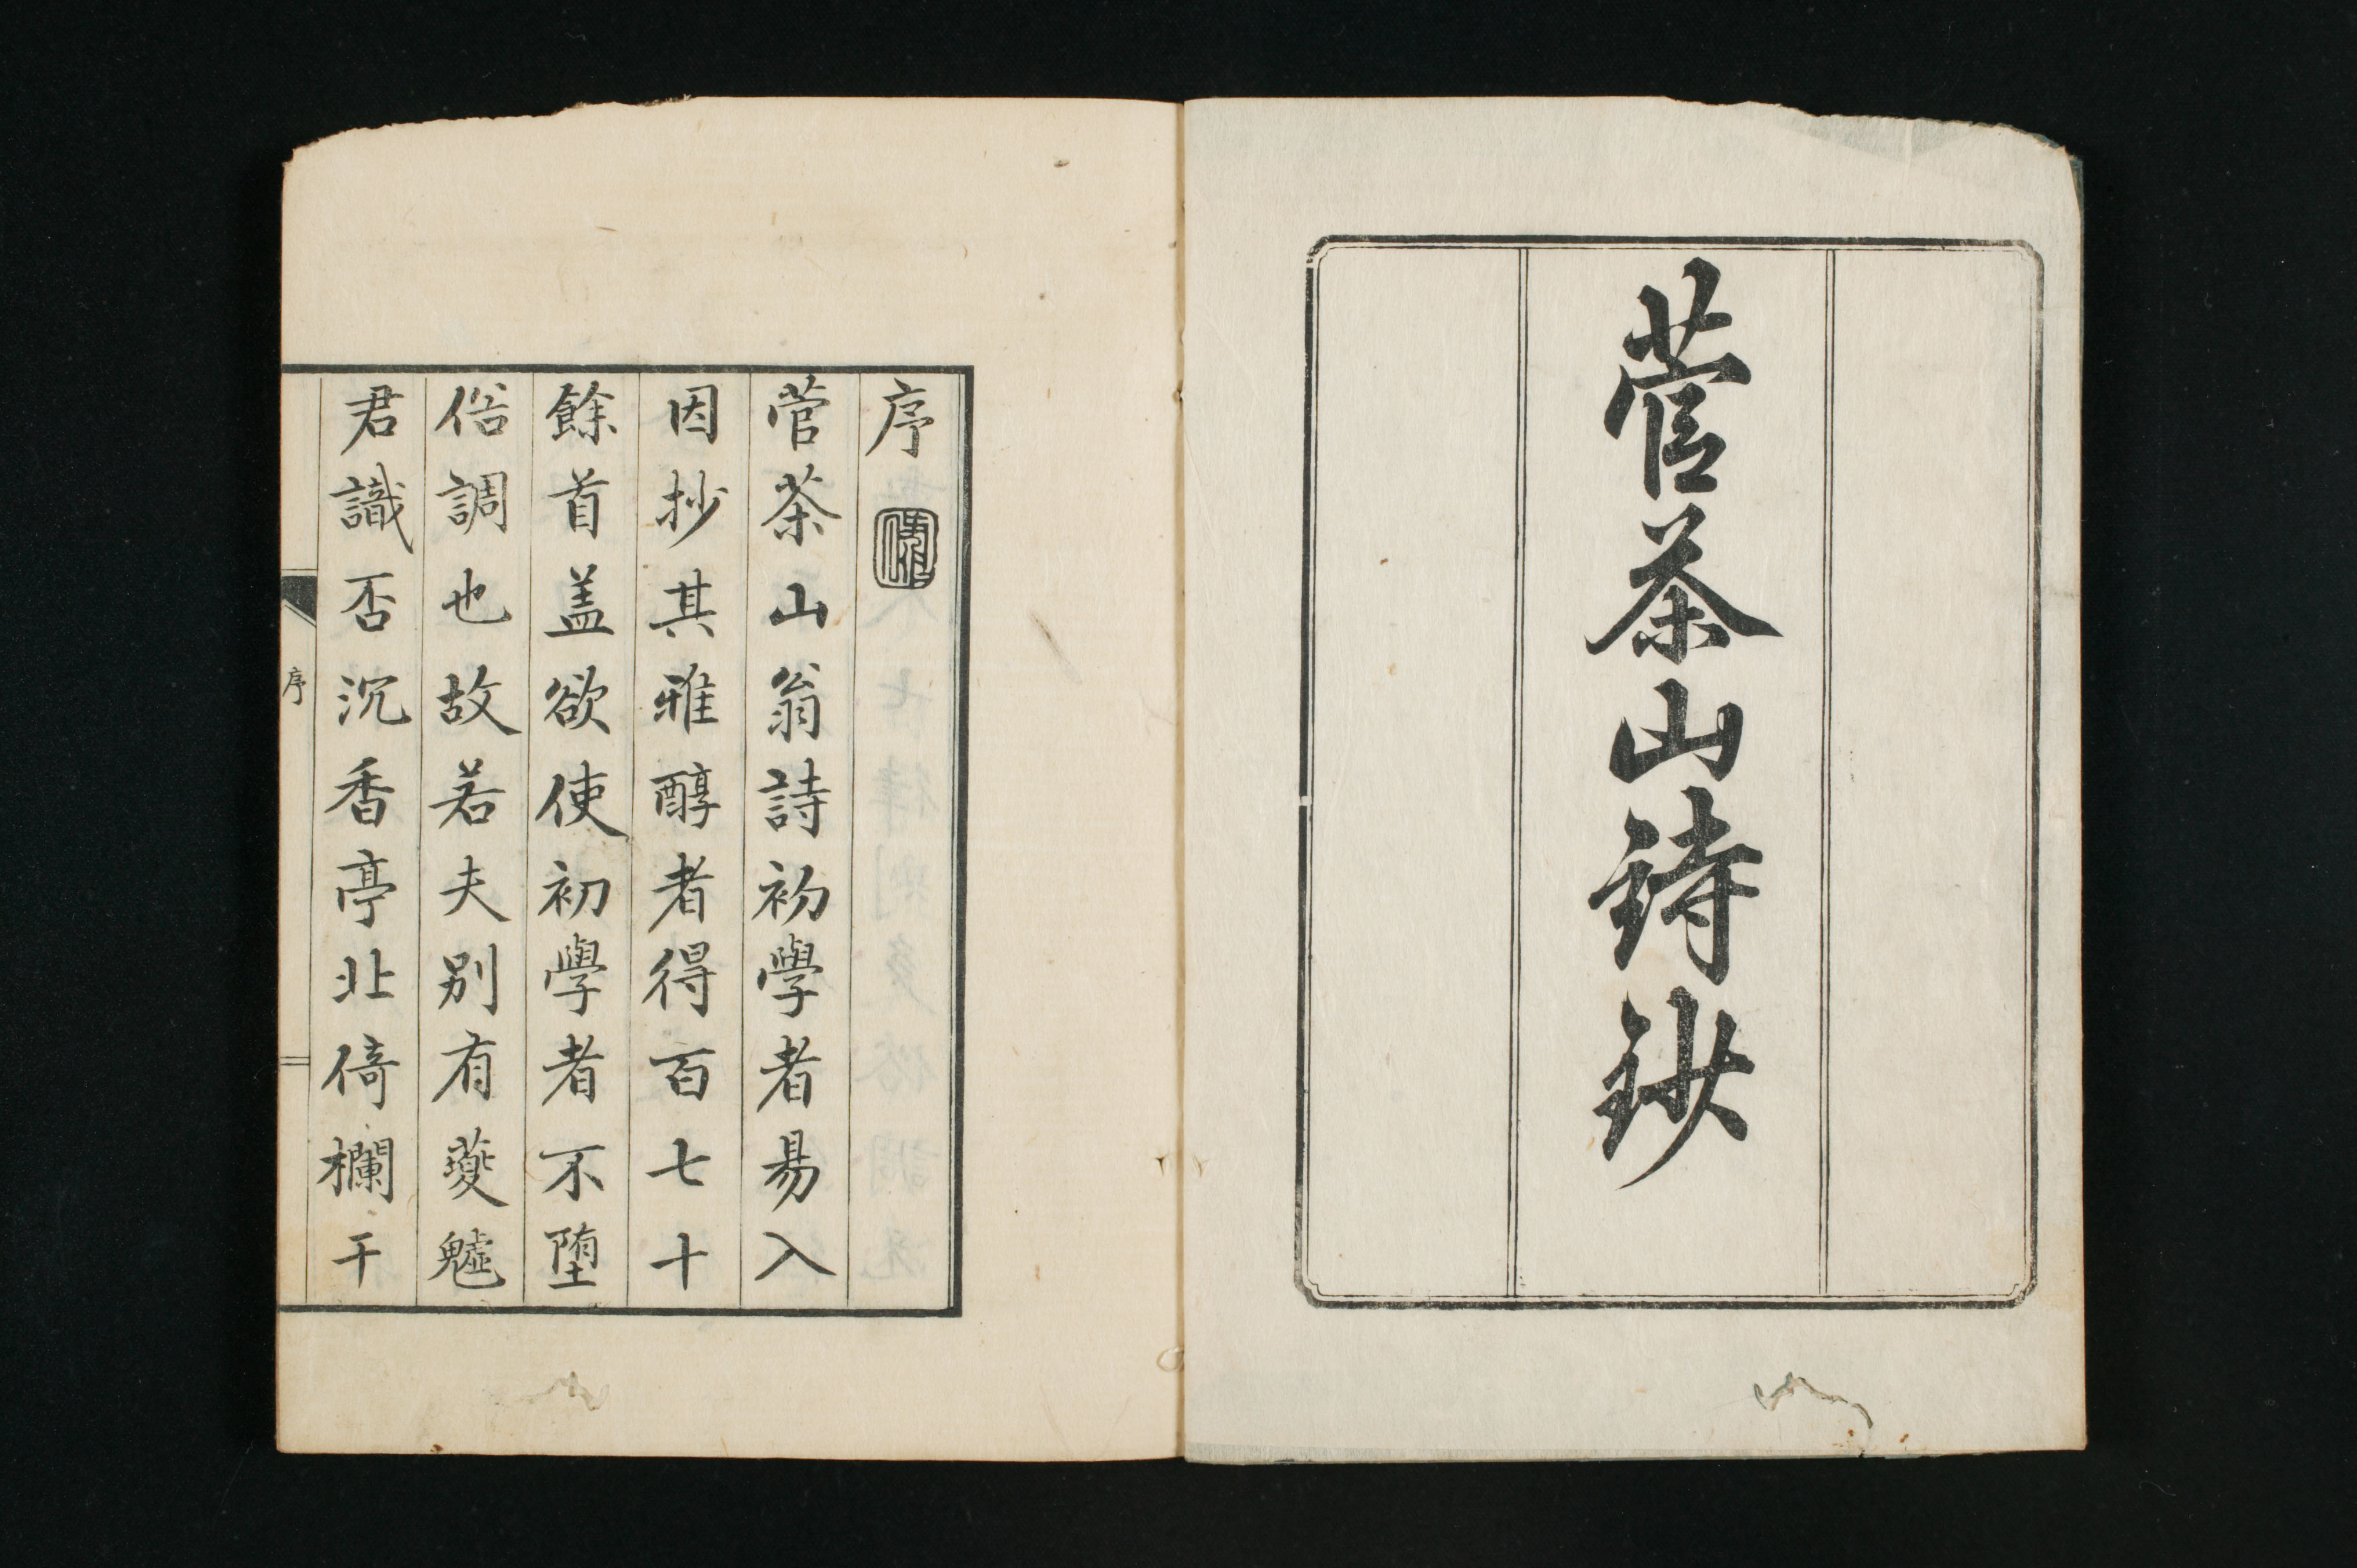 菅茶山詩鈔
序
菅茶山翁詩初學者易入
因抄其雅醇者得百七十
餘首盖欲使初學者不墮
俗調也故若夫別有夔魖
君識否沉香亭北倚欄干
序